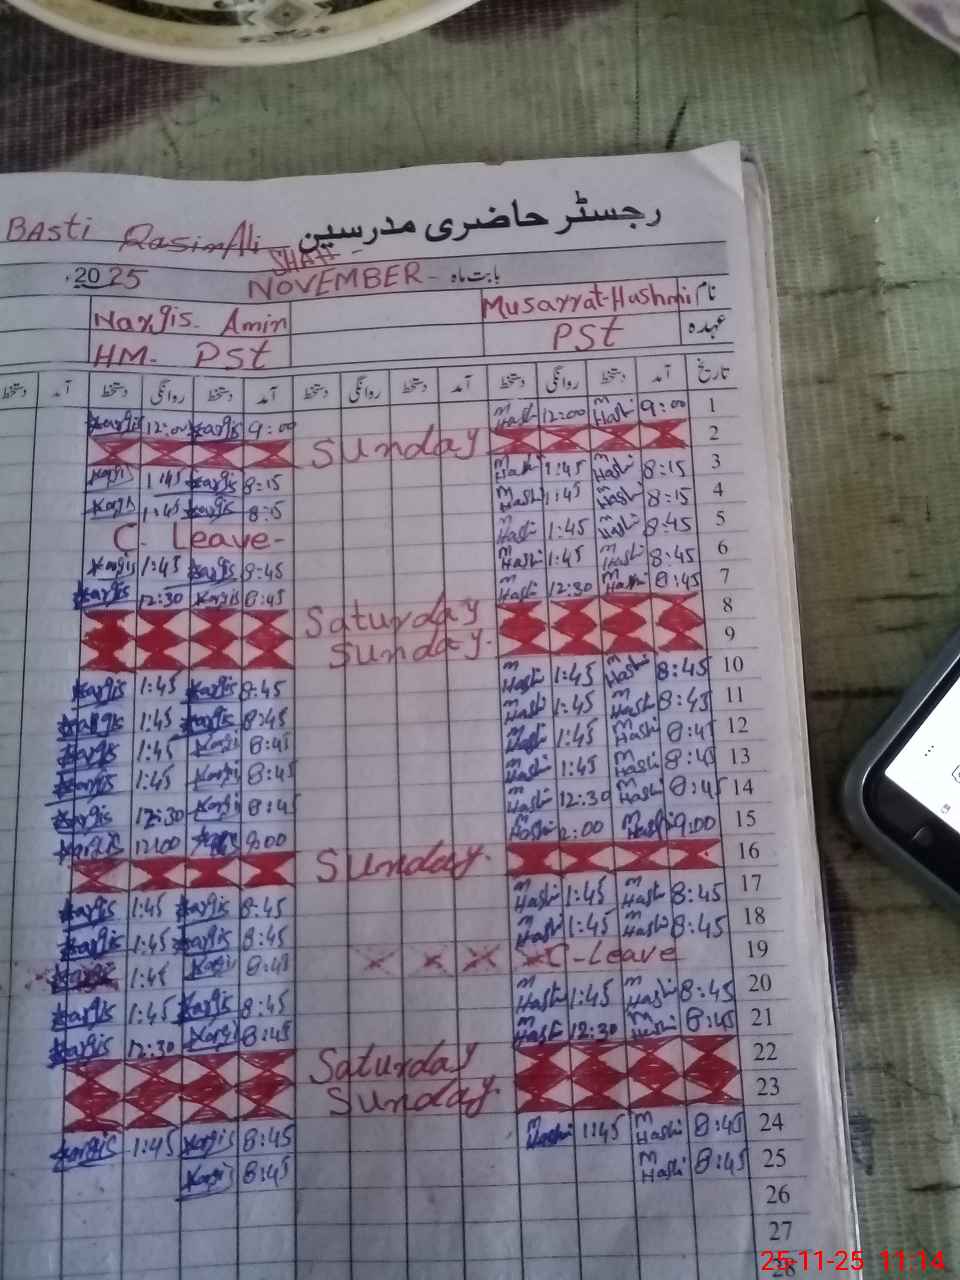 رجسٹر حاضری مدرسین
BAsti QasimAli SHAH
بابت ماہ - NOVEMBER 2025
نام Musarrat-Hashmi Nargis. Amin
عہدہ PSt HM- PSt
تاریخ آمد دستخط روانگی دستخط آمد دستخط روانگی دستخط آمد دستخط روانگی دستخط آمد دستخط
1 9:00 M Hashi 12:00 M Hashi 9:00 Nargis 12:00 Nargis
2 Sunday
3 8:15 M Hashi 1:45 M Hashi 8:15 Nargis 1:45 Nargis
4 8:15 M Hashi 1:45 M Hashi 8:15 Nargis 1:45 Nargis
5 8:45 M Hashi 1:45 M Hashi C- Leave-
6 8:45 M Hashi 1:45 M Hashi 8:45 Nargis 1:45 Nargis
7 8:45 M Hashi 12:30 M Hashi 8:45 Nargis 12:30 Nargis
8 Saturday
9 Sunday.
10 8:45 M Hashi 1:45 M Hashi 8:45 Nargis 1:45 Nargis
11 8:45 M Hashi 1:45 M Hashi 8:45 Nargis 1:45 Nargis
12 8:45 M Hashi 1:45 M Hashi 8:45 Nargis 1:45 Nargis
13 8:45 M Hashi 1:45 M Hashi 8:45 Nargis 1:45 Nargis
14 8:45 M Hashi 12:30 M Hashi 8:45 Nargis 12:30 Nargis
15 9:00 M Hashi 2:00 M Hashi 9:00 Nargis 12:00 Nargis
16 Sunday.
17 8:45 M Hashi 1:45 M Hashi 8:45 Nargis 1:45 Nargis
18 8:45 M Hashi 1:45 M Hashi 8:45 Nargis 1:45 Nargis
19 C-Leave × × × × 8:45 Nargis 1:45
20 8:45 M Hashi 1:45 M Hashi 8:45 Nargis 1:45 Nargis
21 8:45 M Hashi 12:30 M Hashi 8:45 Nargis 12:30 Nargis
22 Saturday
23 Sunday.
24 8:45 M Hashi 1:45 M Hashi 8:45 Nargis 1:45 Nargis
25 8:45 M Hashi 8:45 Nargis
26
27
28
25-11-25 11:14